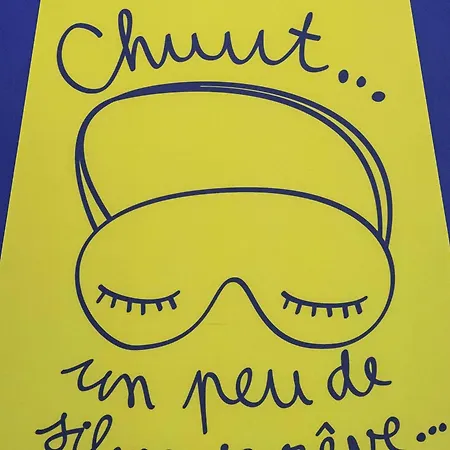 Chuuut...
un peu de
rêve...